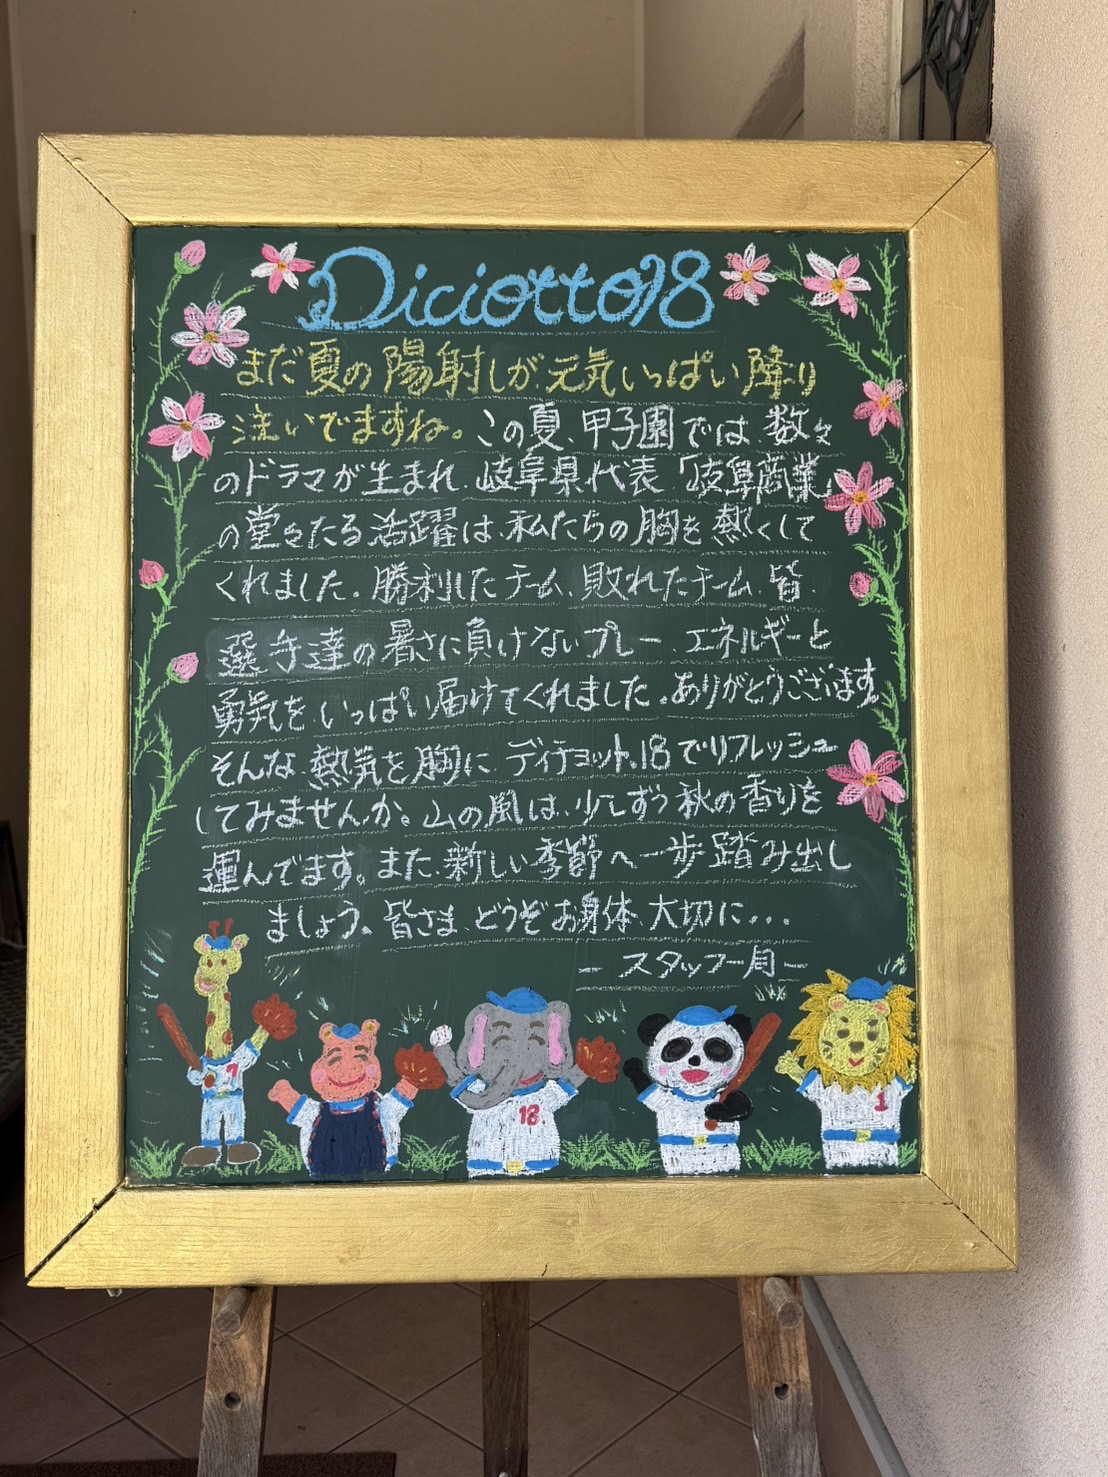 Diciotto18
まだ夏の陽射しが元気いっぱい降り
注いでますね。この夏、甲子園では、数々
のドラマが生まれ、岐阜県代表「岐阜商業」
の堂々たる活躍は、私たちの胸を熱くして
くれました。勝利したチーム、敗れたチーム、皆、
選手達の暑さに負けないプレー、エネルギーと
勇気を、いっぱい届けてくれました。ありがとうございます。
そんな熱気を胸にディチョット.18でリフレッシュ
してみませんか。山の風は、少しずつ秋の香りを
運んでます。また、新しい季節へ一歩踏み出し
ましょう、皆さま、どうぞお身体、大切に...
ースタッフ一同ー
7
18
1